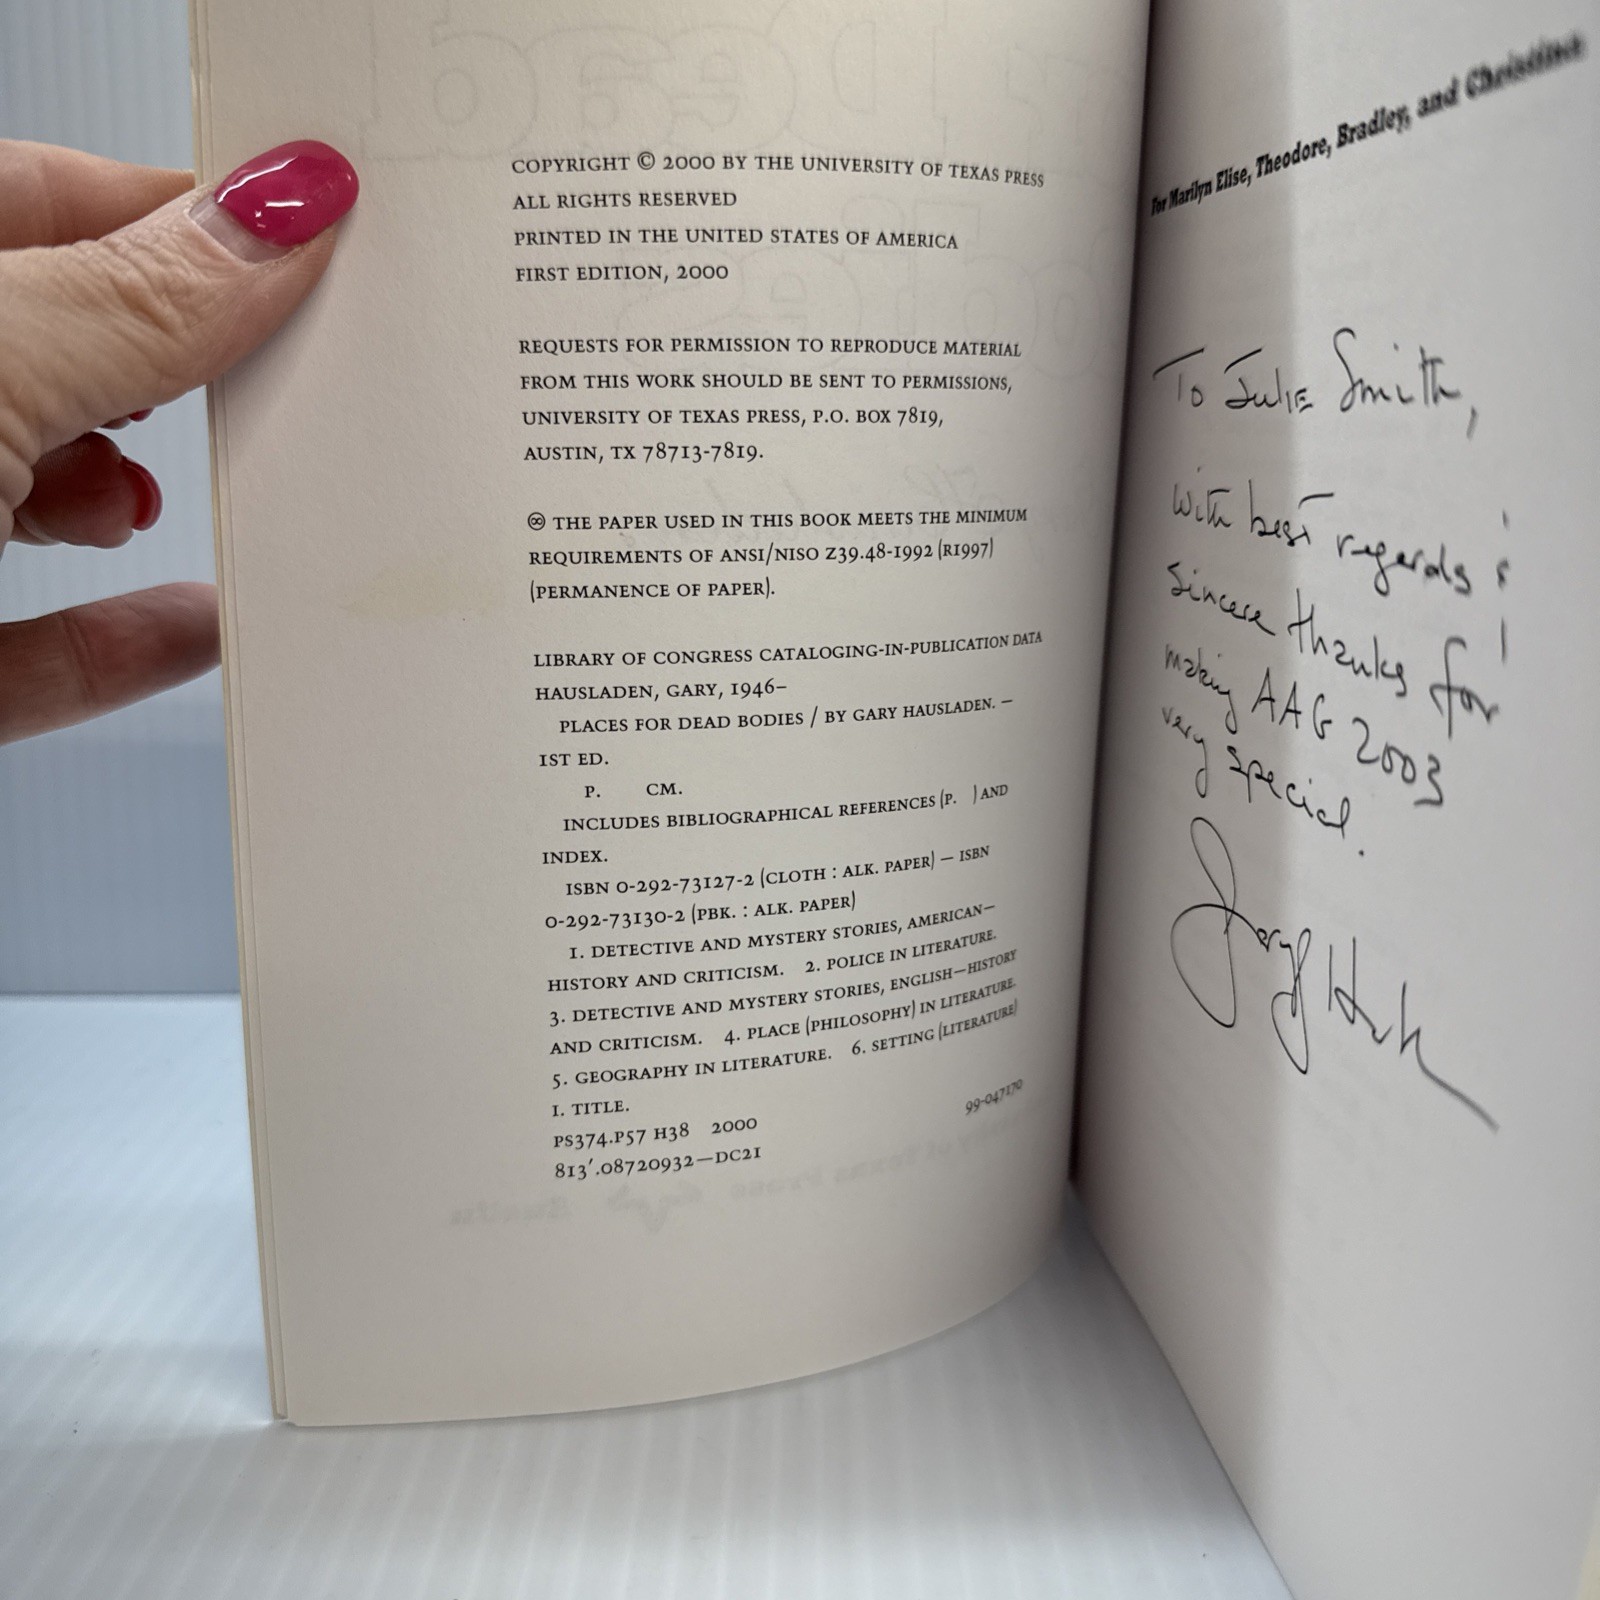 COPYRIGHT © 2000 BY THE UNIVERSITY OF TEXAS PRESS
ALL RIGHTS RESERVED
PRINTED IN THE UNITED STATES OF AMERICA
FIRST EDITION, 2000
REQUESTS FOR PERMISSION TO REPRODUCE MATERIAL
FROM THIS WORK SHOULD BE SENT TO PERMISSIONS,
UNIVERSITY OF TEXAS PRESS, P.O. BOX 7819,
AUSTIN, TX 78713-7819.
♾ THE PAPER USED IN THIS BOOK MEETS THE MINIMUM
REQUIREMENTS OF ANSI/NISO Z39.48-1992 (R1997)
(PERMANENCE OF PAPER).
LIBRARY OF CONGRESS CATALOGING-IN-PUBLICATION DATA
HAUSLADEN, GARY, 1946–
PLACES FOR DEAD BODIES / BY GARY HAUSLADEN. —
1ST ED.
P. CM.
INCLUDES BIBLIOGRAPHICAL REFERENCES (P. ) AND
INDEX.
ISBN 0-292-73127-2 (CLOTH : ALK. PAPER) — ISBN
0-292-73130-2 (PBK. : ALK. PAPER)
1. DETECTIVE AND MYSTERY STORIES, AMERICAN—
HISTORY AND CRITICISM. 2. POLICE IN LITERATURE.
3. DETECTIVE AND MYSTERY STORIES, ENGLISH—HISTORY
AND CRITICISM. 4. PLACE (PHILOSOPHY) IN LITERATURE.
5. GEOGRAPHY IN LITERATURE. 6. SETTING (LITERATURE)
I. TITLE.
PS374.P57 H38 2000
813'.08720932—DC21
99-047170
For Marilyn Elise, Theodore, Bradley, and Christina
To Julie Smith,
With best regards &
sincere thanks for
making AAG 2003
very special.